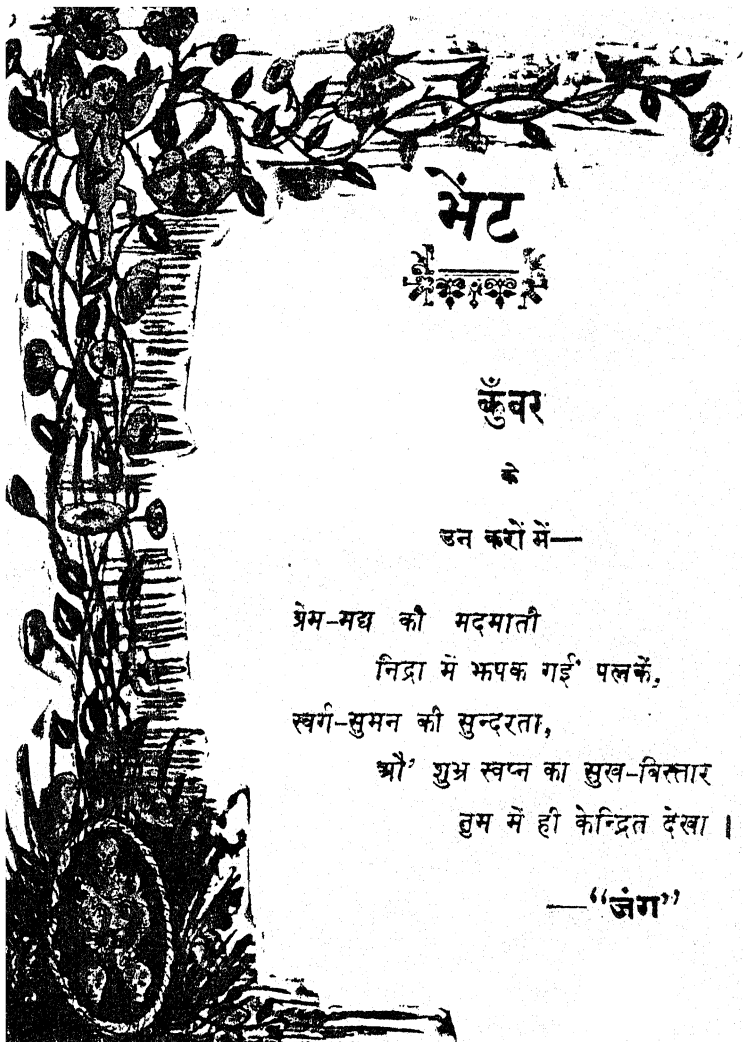 भेंट
कुँवर
के
उन करों में—
प्रेम-मद्य की मदमाती
निद्रा में झपक गईं पलकें,
स्वर्ग-सुमन की सुन्दरता,
औ' शुभ्र स्वप्न का सुख-विस्तार
तुम में ही केन्द्रित देखा ।
—“जंग”